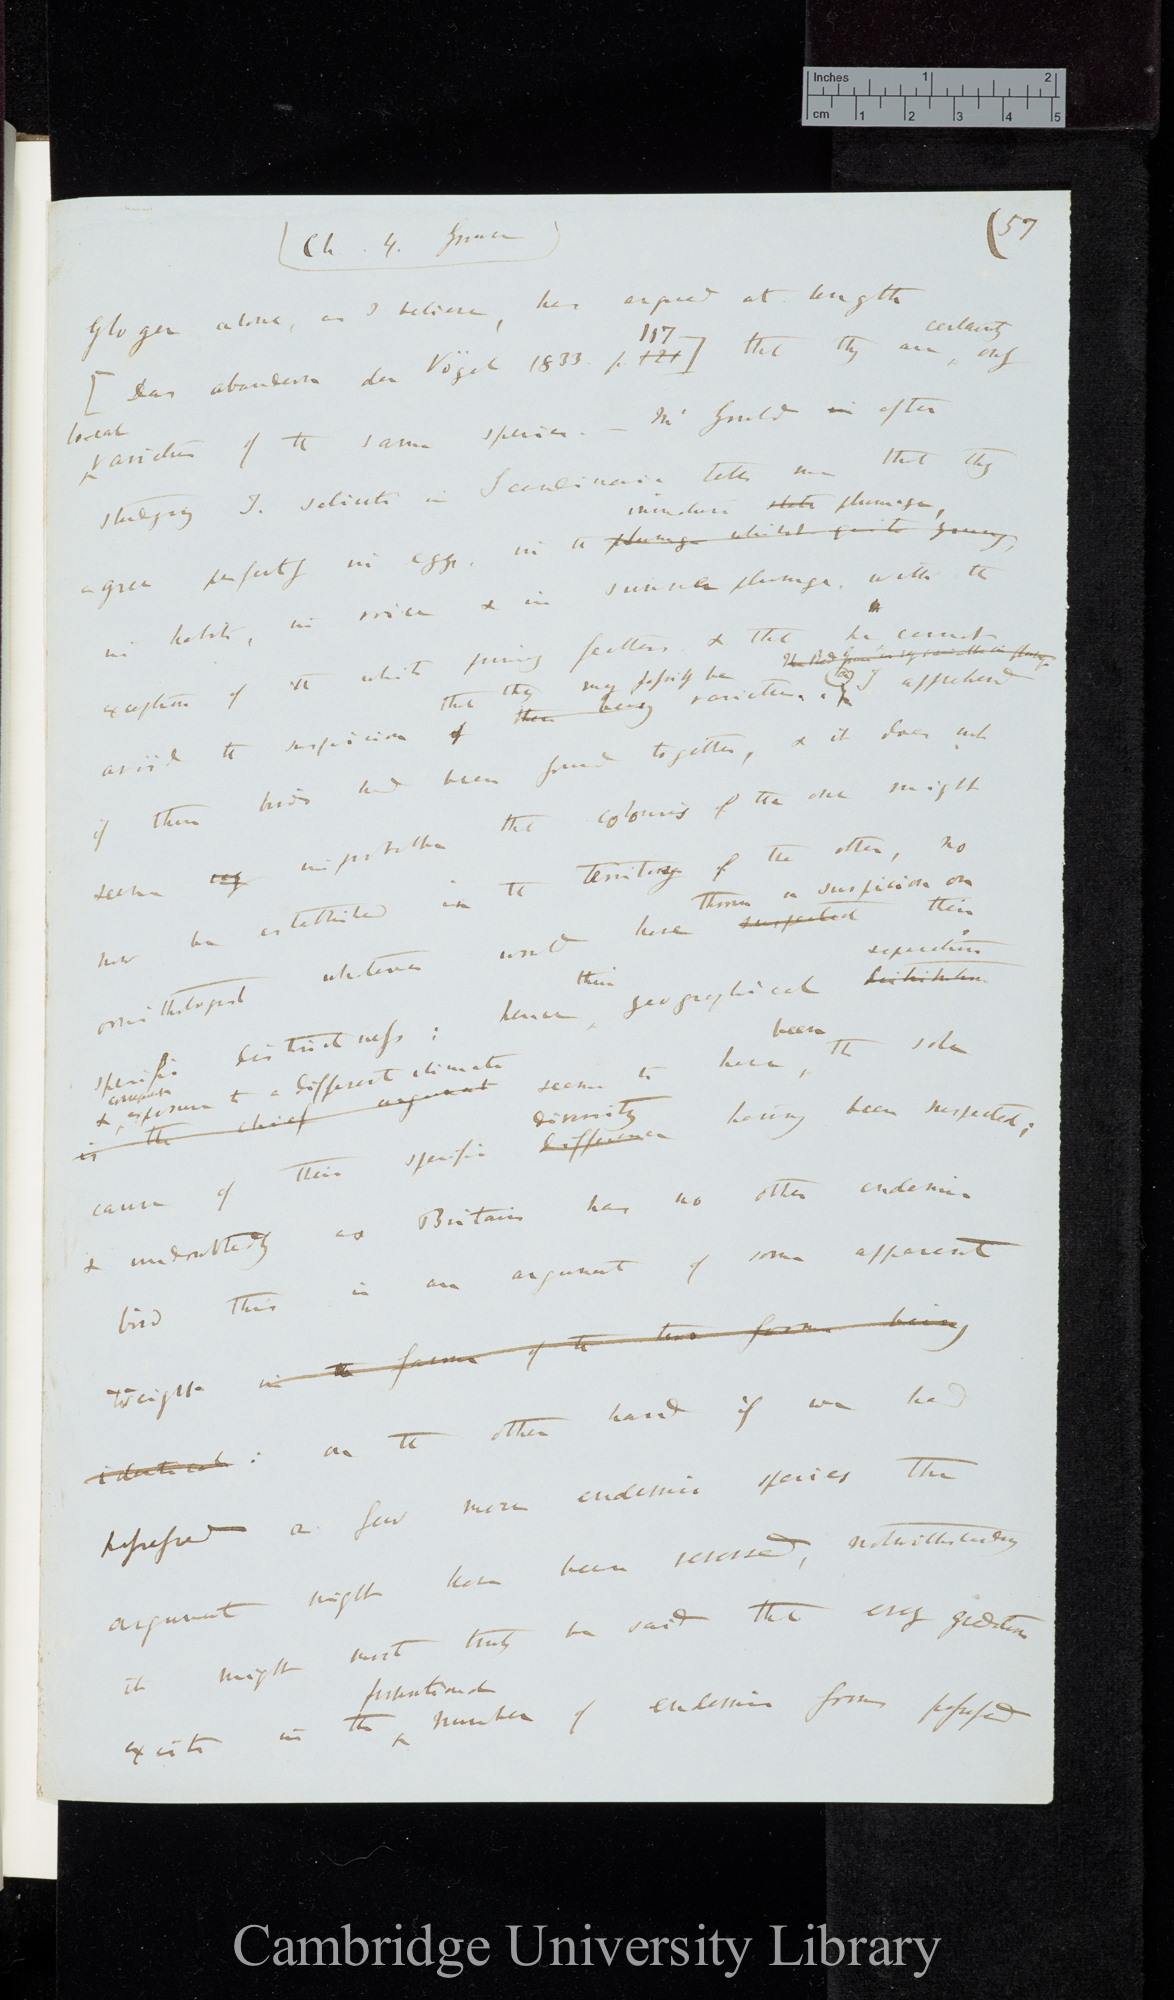 Inches 1 2
cm 1 2 3 4 5
(57
(Ch. 4. Grouse)
Gloger alone, as I believe, has argued at length
[Das abandern der Vögel 1833. p. 121 117] that they are certainly only
local varieties of the same species. — Mr Gould in after
studying T. saliceti in Scandinavia tells me that they
agree perfectly in eggs, in the plumage whilst quite young, immature state plumage,
in habits, in voice & in summer plumage, with the
exception of the white primary feathers & that he cannot
avoid the suspicion of their being that they may possibly be varieties. (a) I apprehend
if these birds had been found together, & it does not
seem very impossible that colours of the one might
now be established in the territory of the other, no
ornithologist whatever would have suspected thrown a suspicion on their
specific distinctness; hence their geographical distribution separation
is the chief argument & consequent exposure to a different climate seems to have been, the sole
cause of their specific difference diversity having been suspected;
& undoubtedly as Britain has no other endemic
bird this is an argument of some apparent
weight in the favour of the two forms being
identical: on the other hand if we had
possessed a few more endemic species the
argument might have been reversed, notwithstanding
it might most truly be said that every gradation
exists in the proportional number of endemic forms possessed
Cambridge University Library